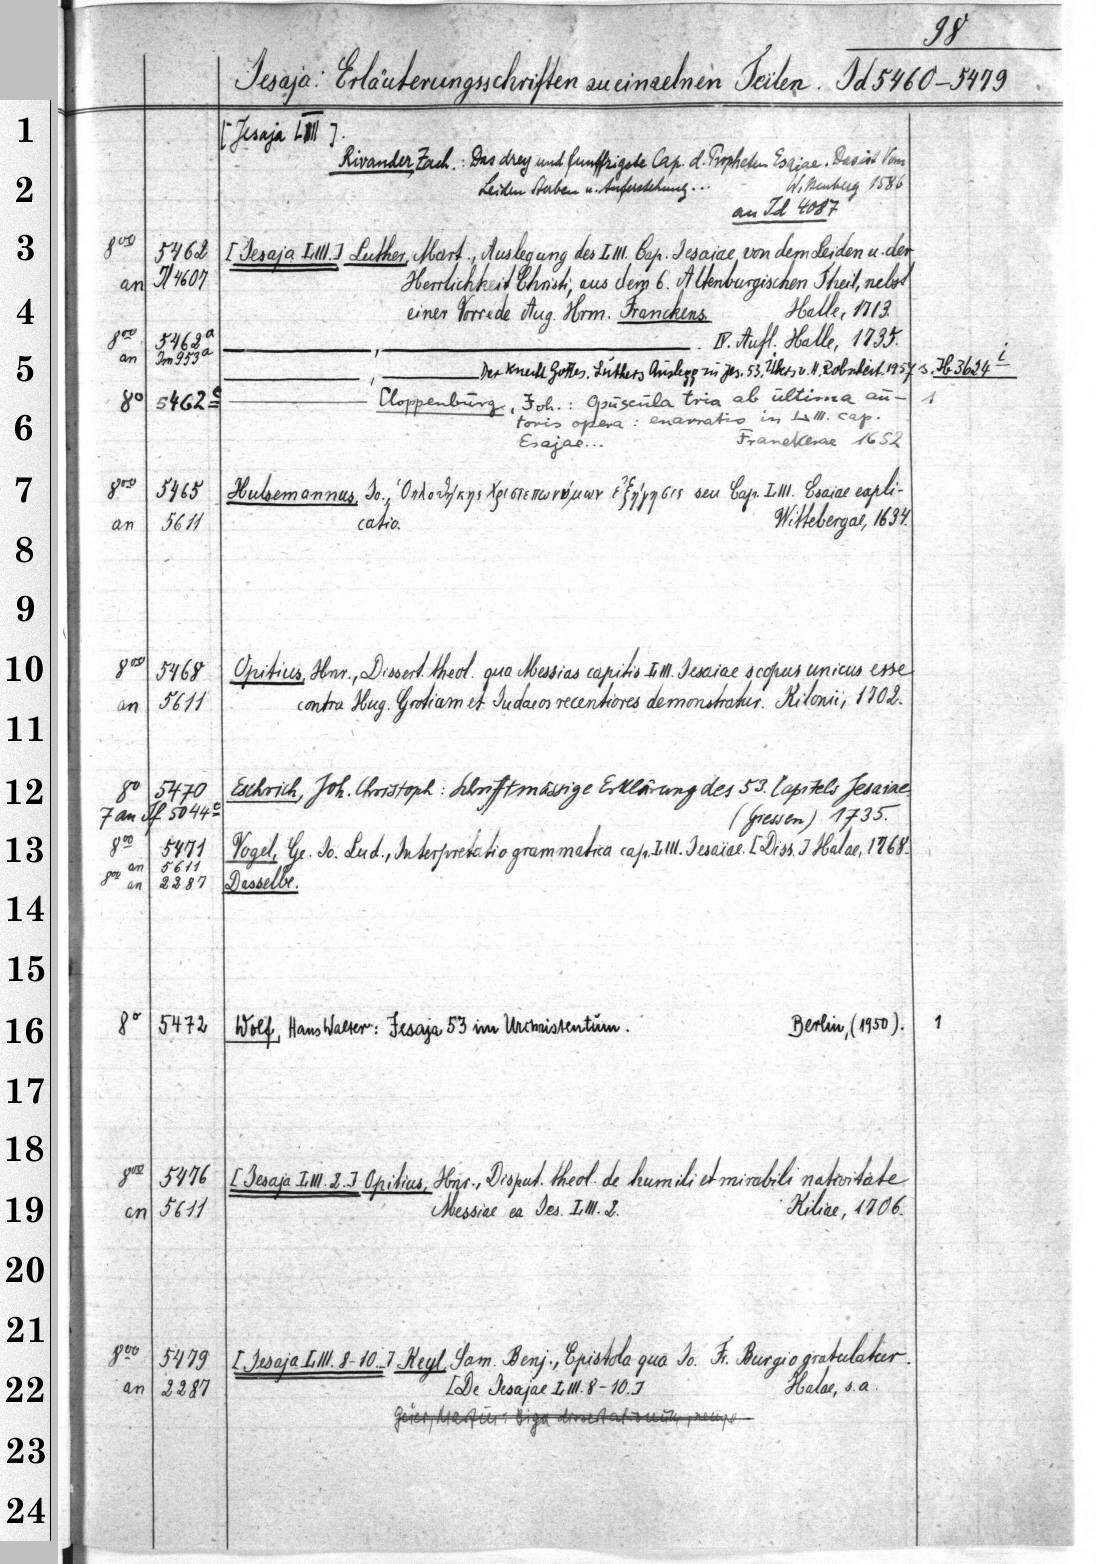 98
Jesaja: Erläuterungsschriften zu einzelnen Teilen. Id 5460–5479
1
[Jesaja LIII].
Rivander, Zach.: Das drey und funffzigste Cap. d. Propheten Esajae. Das ist Vom
2
Leiden Sterben u. Auferstehung... Wittenberg 1586
an Id 4087
3
8° 5462 [Jesaja LIII.] Luther, Mart., Auslegung des LIII. Cap. Jesaiae, von dem Leiden u. der
an 4607 Herrlichkeit Christi, aus dem 6. Altenburgischen Theil, nebst
4
einer Vorrede Aug. Hrm. Franckens Halle, 1713.
8° 5462a
an Im 953a —, — . IV. Aufl. Halle, 1735.
5
—, — Der Knecht Gottes. Luthers Auslegg zu Jes. 53. Übers. v. H. Robscheit. 1957 s. Ib 3624 i
8° 5462c — Cloppenburg, Joh.: Opuscula tria ab ultima au- 1
6
toris opera: enarratio in LIII. cap.
Esajae... Franekerae 1652
7
8° 5465 Hulsemannus, Jo., Ὁπλοθήκης Χριστεπωνύμων ἐξήγησις seu Cap. LIII. Esaiae expli-
an 5611 catio. Wittebergae, 1634.
8
9
10
8° 5468 Opitius, Hnr., Dissert. theol. qua Messias capitis LIII. Jesaiae scopus unicus esse
an 5611 contra Hug. Grotiam et Judaeos recentiores demonstratur. Kilonii, 1702.
11
12
8° 5470 Eschrich, Joh. Christoph: Schriftmässige Erklärung des 53. Capitels Jesaiae
7 an If 5044c (Giessen) 1735.
13
8° 5471 Vogel, Ge. Jo. Lud., Interpretatio grammatica cap. LIII. Jesaiae. [Diss.] Halae, 1768.
an 5611
8° an 2287 Dasselbe.
14
15
16
8° 5472 Wolf, Hans Walter: Jesaja 53 im Urchristentum. Berlin, (1950). 1
17
18
8° 5476 [Jesaja LIII. 2.] Opitius, Hnr., Disput. theol. de humili et mirabili nativitate
19
an 5611 Messiae ea Jes. LIII. 2. Kiliae, 1706.
20
21
8° 5479 [Jesaja LIII. 8-10.] Keyl, Sam. Benj., Epistola qua Jo. Fr. Burgio gratulatur.
22
an 2287 [De Jesajae LIII. 8-10.] Halae, s.a.
Geier, Martin: Biga dissertationum,
23
24